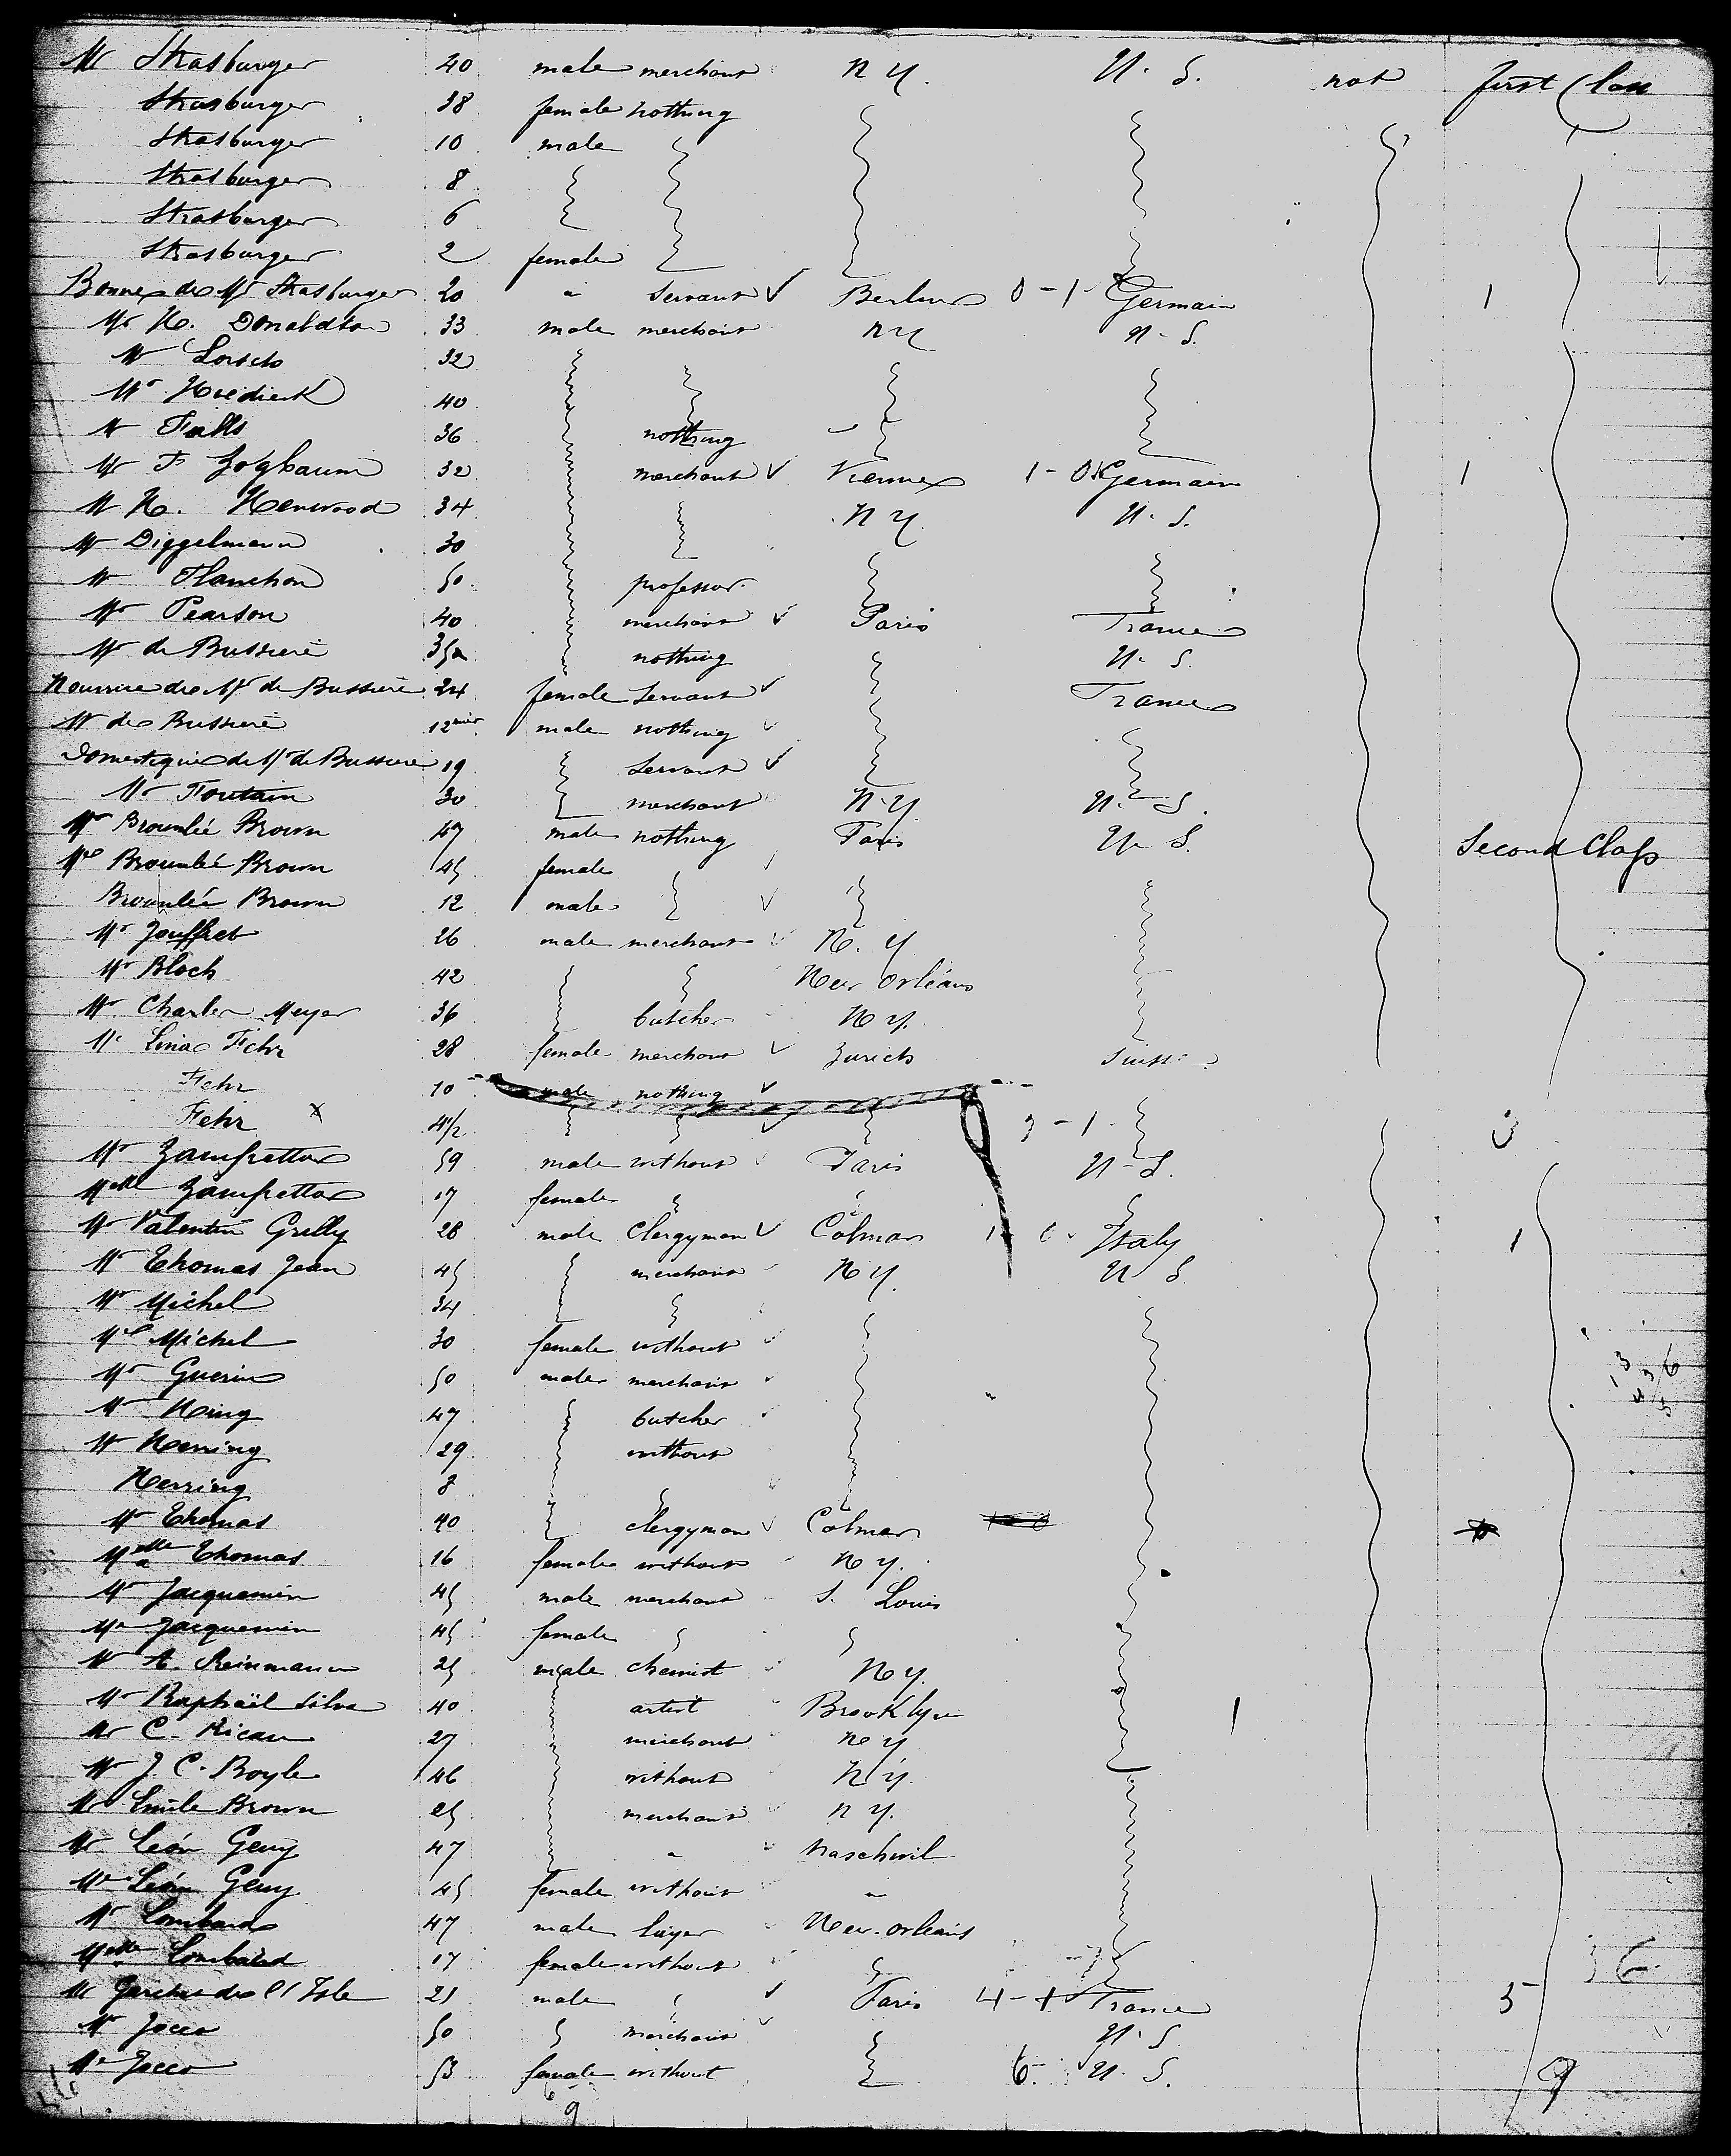 Mr Strasburger 40 male merchant N Y. U. S. not first Class
Strasburger 38 female nothing
Strasburger 10 male
Strasburger 8
Strasburger 6
Strasburger 2 female
Bonne de Mr Strasburger 20 " servant ✓ Berlin 0-1 Germain 1
Mr H. Donaldson 33 male merchant N Y U. S.
Mr Lorsch 32
Mr Hoedieck 40
Mr Falls 36 nothing
Mr F Zogbaum 32 merchant ✓ Vienne 1-0 Germain 1
Mr H. Henwood 34 N Y. U. S.
Mr Diggelmann 30
Mr Planchon 50 professor
Mr Pearson 40 merchant ✓ Paris France
Mr de Bussiere 35 nothing U. S.
Nourrice de Mr de Bussiere 24 female servant ✓ France
Mr de Bussiere 12 male nothing ✓
Domestique de Mr de Bussiere 19 servant ✓
Mr Foutain 30 merchant N. Y. U. S.
Mr Brounlée Brown 47 male nothing Paris U. S. Second Class
Me Brounlée Brown 45 female ✓
Brounlée Brown 12 male ✓
Mr Jouffret 26 male merchant N. Y
Mr Bloch 42 New Orléans
Mr Charles Meyer 36 butcher N Y.
Me Lina Fehr 28 female merchant ✓ Zurich Suisse
Fehr 10 male nothing ✓
Fehr x 4 1/2 ✓ 3-1 3
Mr Zamfretta 59 male without Paris U-S.
Melle Zamfretta 17 female
Mr Valentin Grelly 28 male Clergyman ✓ Colmar Italy 1
Mr Thomas Jean 45 merchant N Y. U S
Mr Michel 34
Me Michel 30 female without
Mr Guerin 50 male merchant
Mr Hoing 47 butcher
Mr Herring 29 without
Herring 8
Mr Thomas 40 clergyman ✓ Colmar
Melle Thomas 16 female without N Y.
Mr Jacquemin 45 male merchant S. Louis
Me Jacquemin 45 female
Mr A. Reinmann 25 male chemist N Y.
Mr Raphaël Silva 40 artist Brooklyn 1
Mr C. Ricau 27 merchant N Y
Mr J. C. Boyle 46 without N Y.
Mr Emile Brown 25 merchant N Y.
Mr Léon Geny 47 " Naschwil
Me Léon Geny 45 female without "
Mr Lombard 47 male lawyer New-orléans
Melle Lombard 17 female without
Mr de l'Isle 25 male ✓ Paris 4-1 France 5
Mr Jocco 50 merchant ✓ U. S.
Me Jocco 53 female without 6 U. S. 9
9